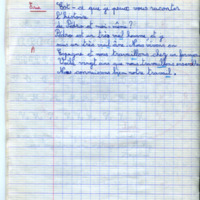 Eva Est-ce que je peux vous raconter
l'histoire
de Pedro et moi-même ?
Pedro est un très vieil homme, et je
suis un très vieil âne. Nous vivons en
Espagne et nous travaillons chez un fermier.
Voilà vingt ans que nous travaillons ensemble
Nous connaissons bien notre travail.